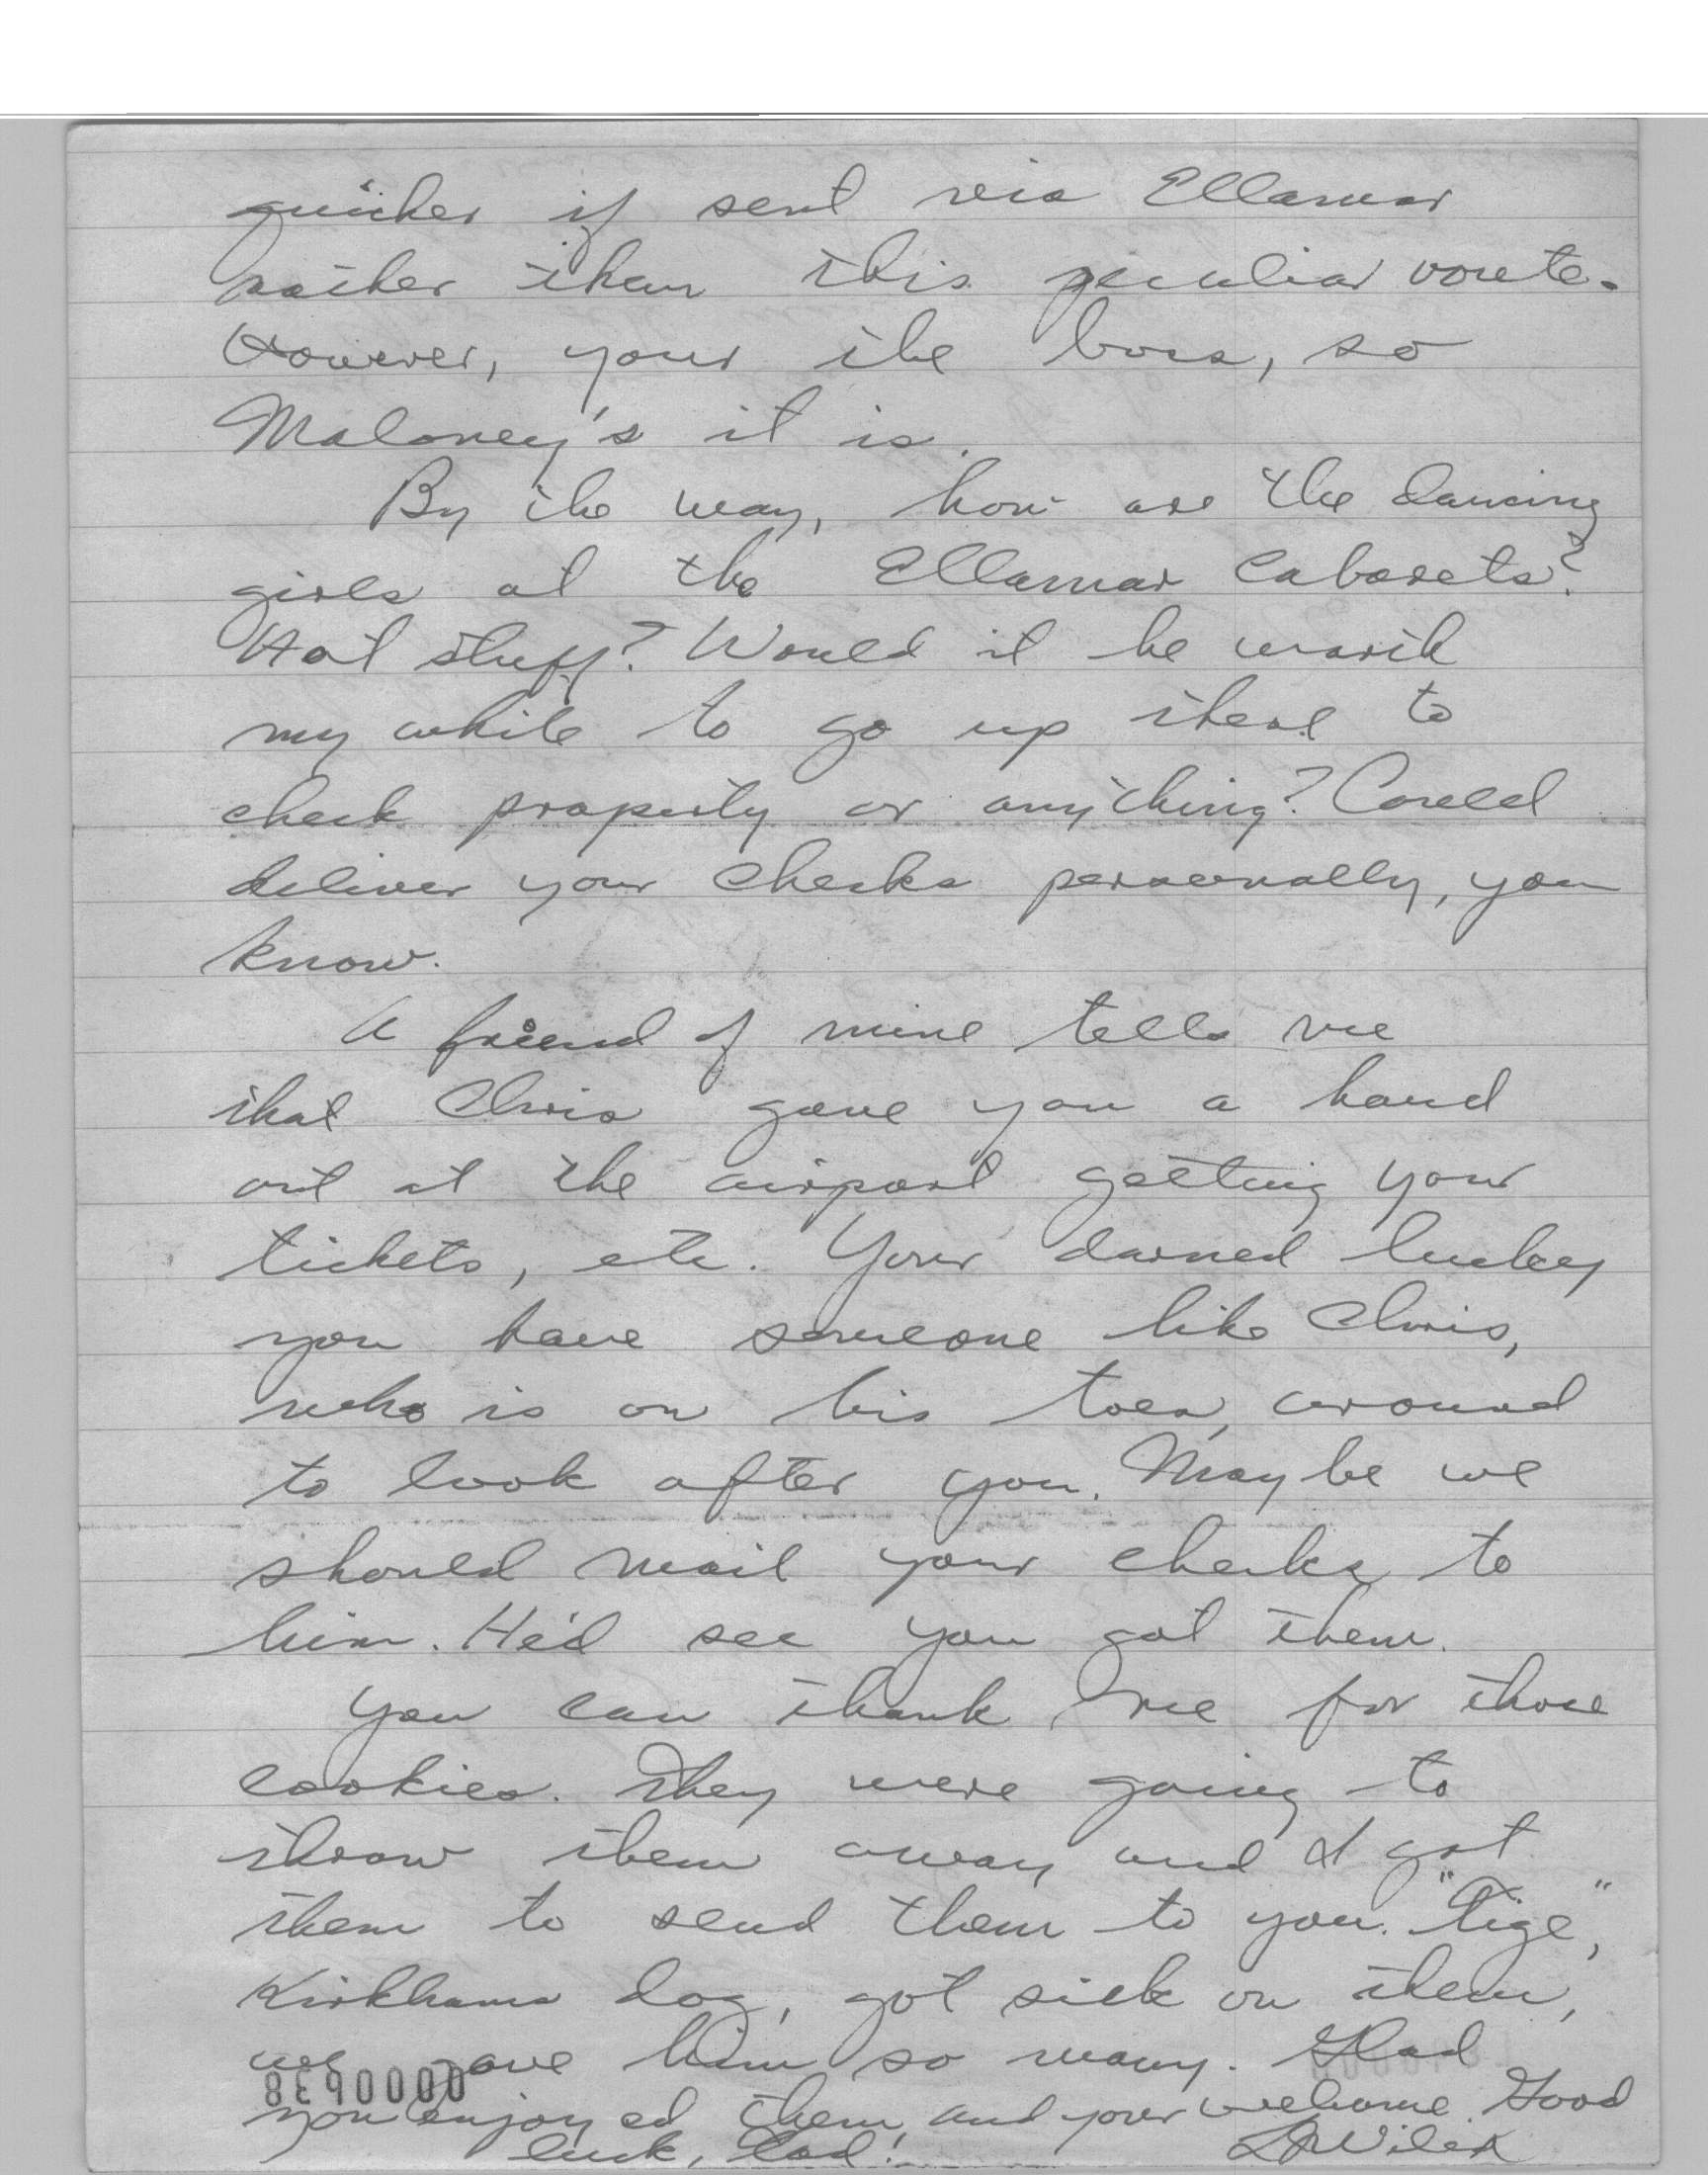 quicker if sent via Ellamar
rather than this peculiar route.
However, your the boss, so
Maloney's it is.
By the way, how are the dancing
girls at the Ellamar Cabarets?
Hot stuff? Would it be worth
my while to go up there to
check property or anything? Could
deliver your checks personally, you
know.
A friend of mine tells me
that Chris gave you a hand
out at the airport getting your
tickets, etc. Your darned lucky
you have someone like Chris,
who is on his toes, around
to look after you. Maybe we
should mail your checks to
him. He'd see you got them.
You can thank me for those
cookies. They were going to
throw them away and I got
them to send them to you. "Tige,"
Kirkhams dog, got sick on them,
we gave him so many. Glad
you enjoyed them, and your welcome. Good
luck, Lad!
00000638